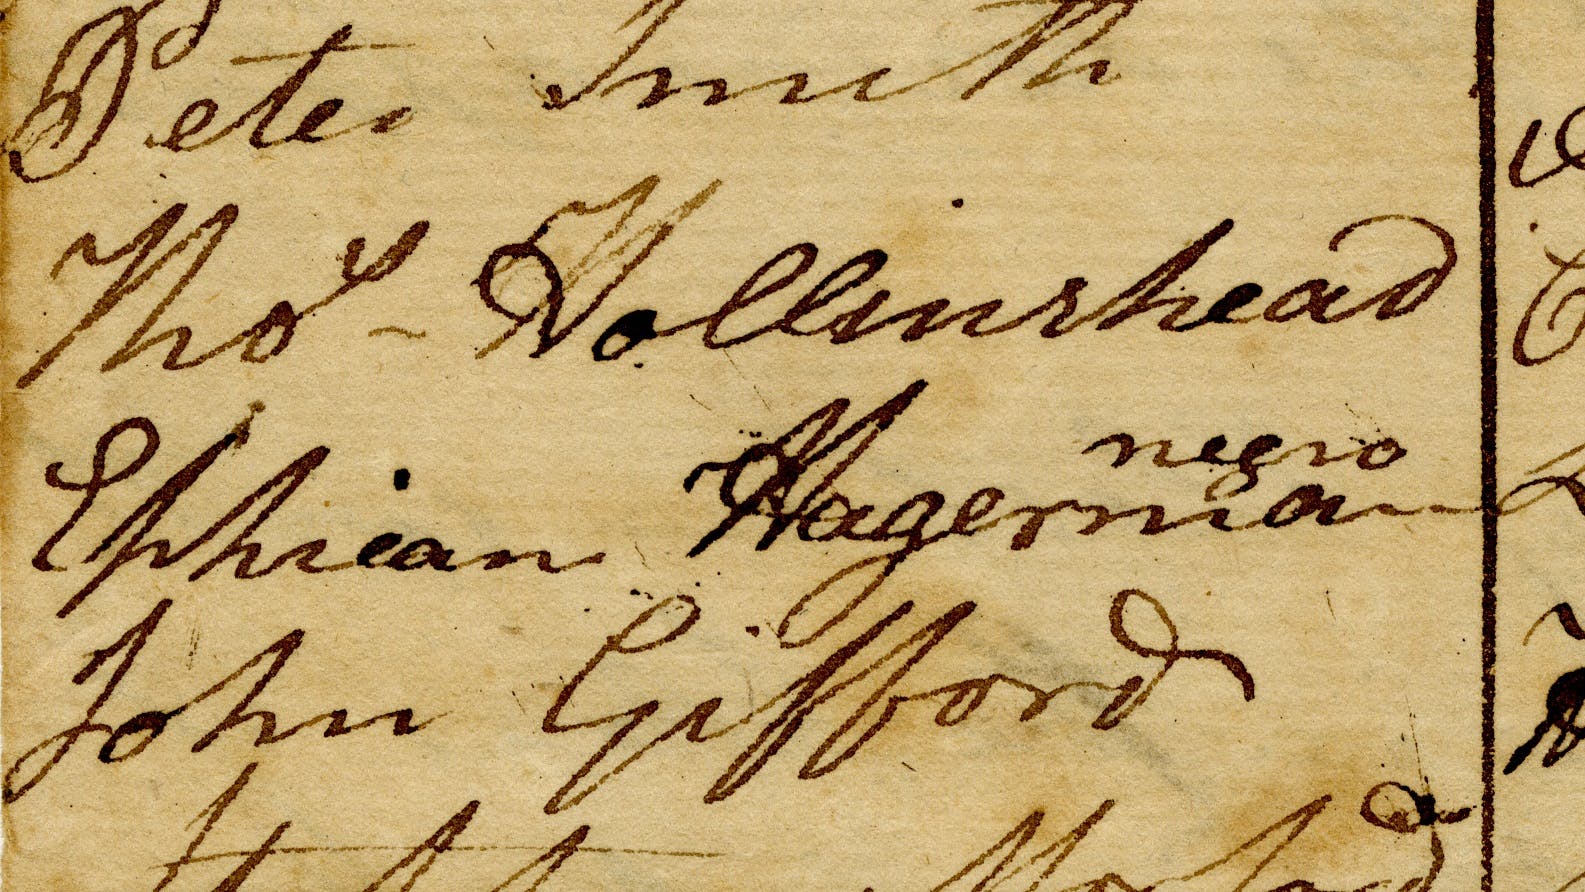 Peter Smith
Thos Hollinshead
negro
Ephiean Hagerman
John Gifford